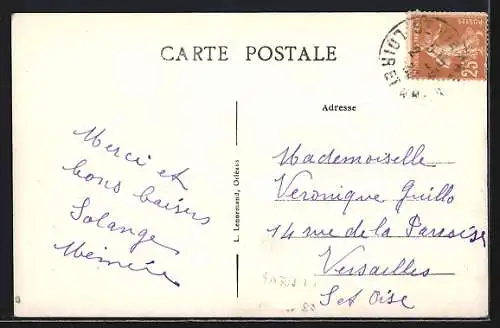 CARTE POSTALE
POSTES
25c
LOIRET
Adresse
Merci et
bons baisers
Solange
Mémère
L. Lenormand, Orléans
Mademoiselle
Veronique Guillo
14 rue de la Paroisse
Versailles
S et Oise